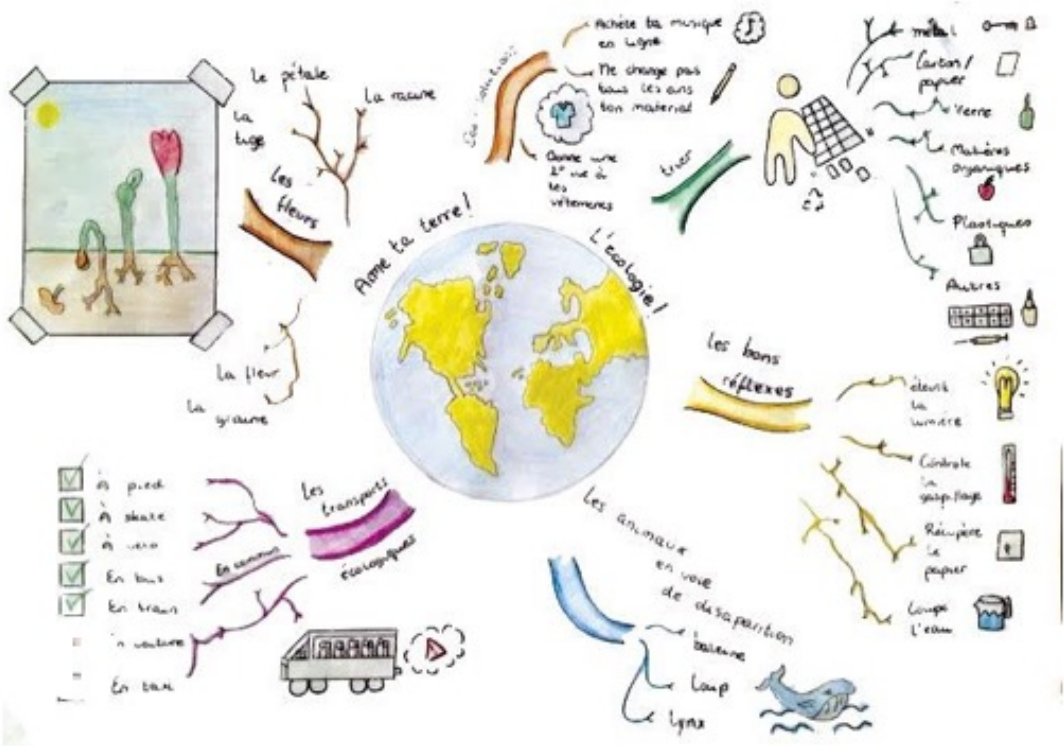 Aime ta terre!
L'écologie!
Les
fleurs
Le pétale
La racine
La
tige
La fleur
La
graine
Achète ta musique
en ligne
Ne change pas
tous les ans
ton material
Donne une
2° vie à
tes
vêtements
trier
métal
Carton/
papier
Verre
Matières
organiques
Plastiques
Autres
Les bons
réflexes
la
lumière
Contrôle
le
gaspillage
Récupère
le
papier
Coupe
l'eau
Les animaux
en voie
de disaparition
baleine
Loup
Lynx
Les transports
écologiques
En commun
À pied
À skate
À vélo
En bus
En train
n voiture
En taxi